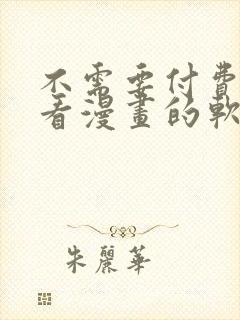 不需要付費
看漫畫的軟
朱麗華